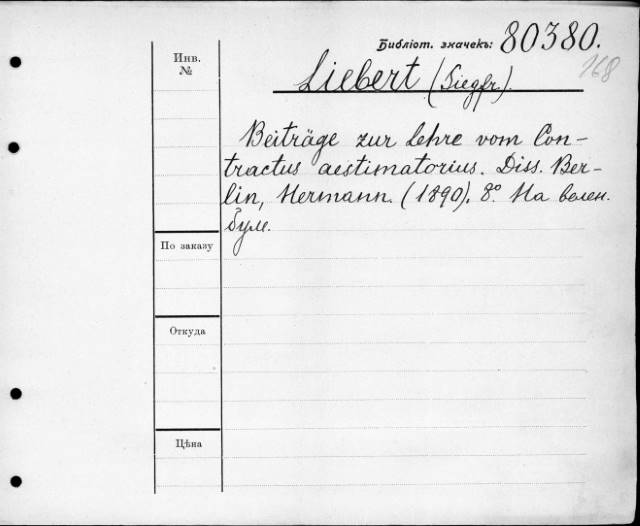 Библіот. значекъ: 80380.
168
Инв.
№
Liebert (Siegfr.).
Beiträge zur Lehre vom Con-
tractus aestimatorius. Diss. Ber-
lin, Hermann. (1890). 8º. На велен.
бум.
По заказу
Откуда
Цѣна